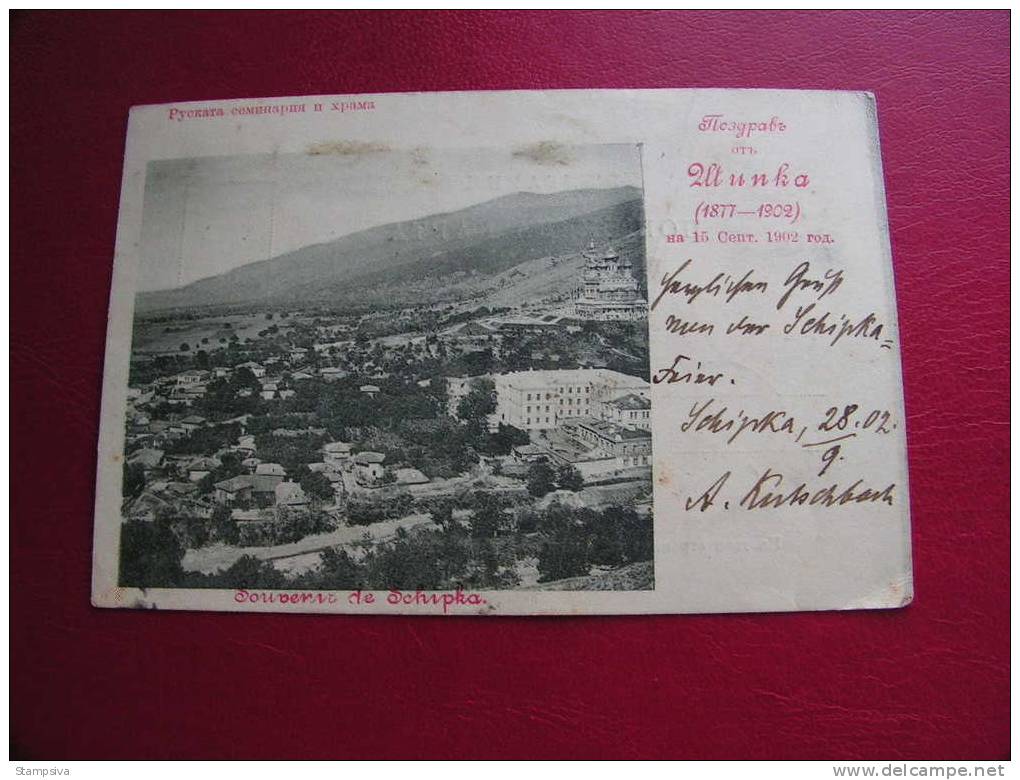 Руската семинария и храма
Поздравъ
отъ
Шипка
(1877—1902)
на 15 Септ. 1902 год.
Herzlichen Gruß
von der Schipka-
Feier.
Schipka, 28.02.
9.
A. Kutschbach
Souvenir de Schipka.
Stampsiva
delcampe.net